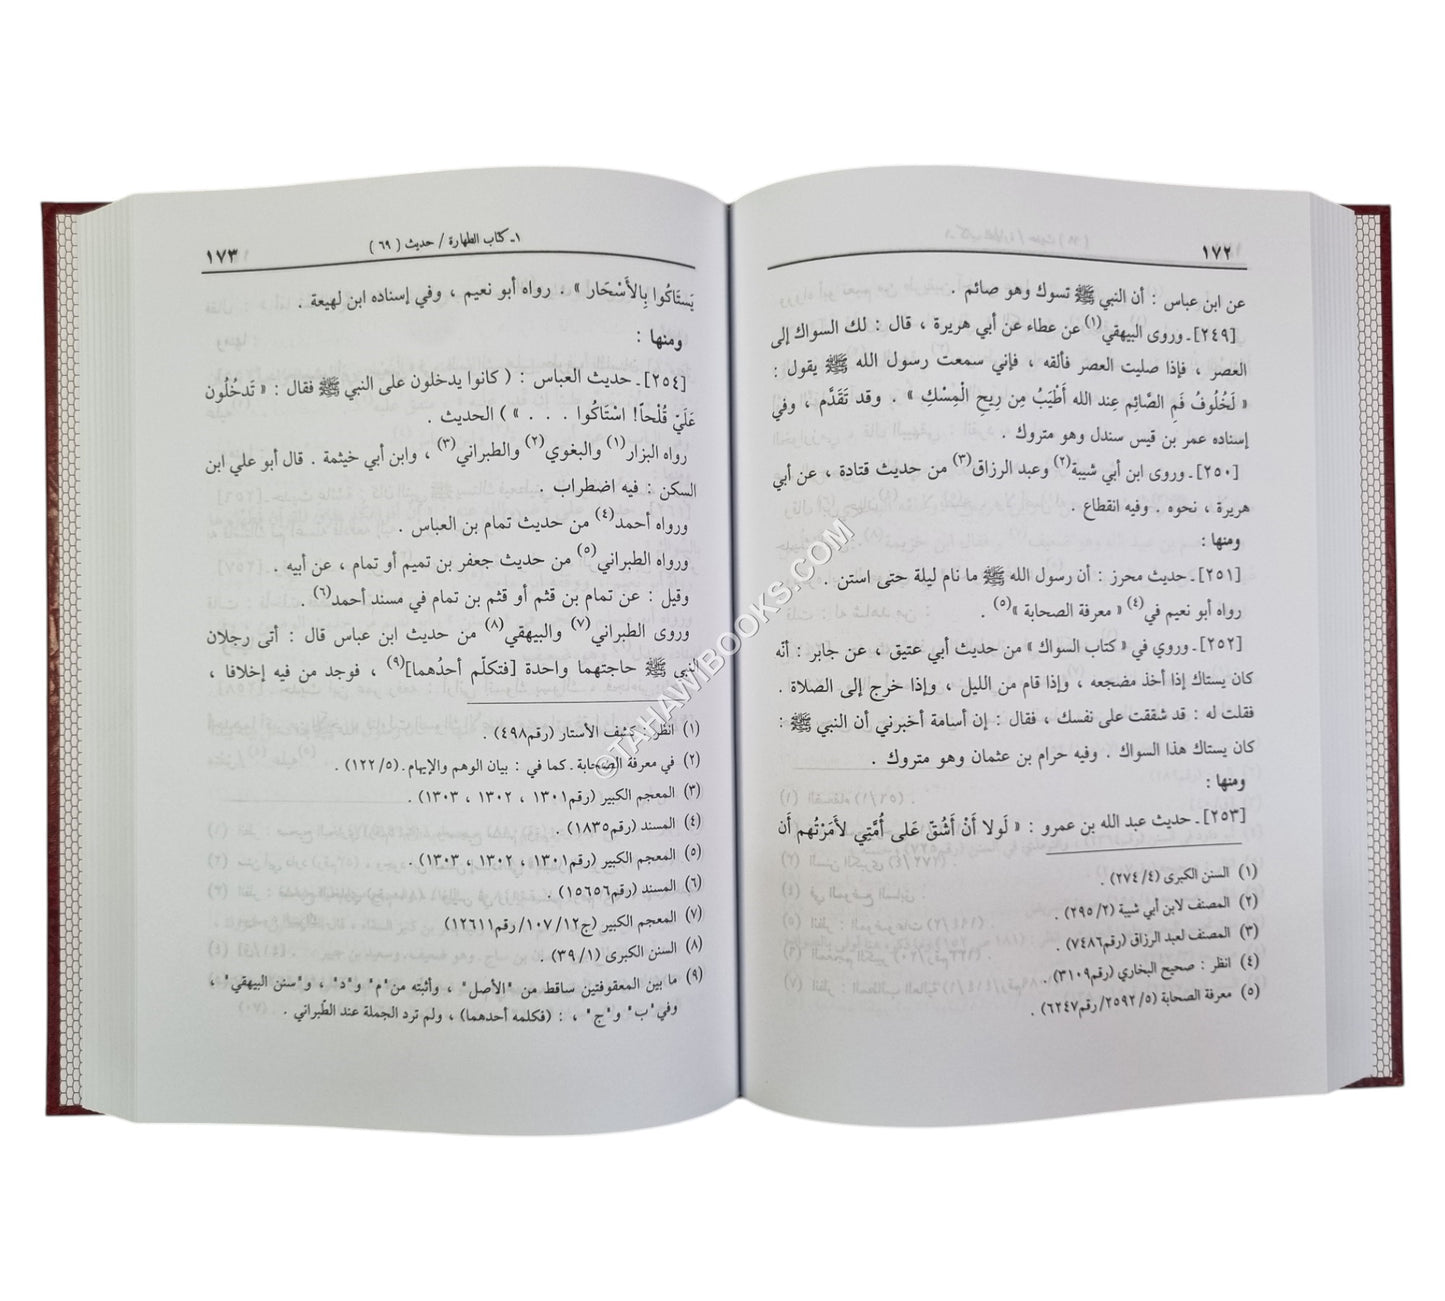 ١٧٢
عن ابن عباس : أن النبي ﷺ تسوك وهو صائم .
[٢٤٩]ـ وروى البيهقي(١) عن عطاء عن أبي هريرة ، قال : لك السواك إلى
العصر ، فإذا صليت العصر فألقه ، فإني سمعت رسول الله ﷺ يقول :
« لَخُلُوفُ فَمِ الصَّائِمِ عِند الله أَطْيَبُ مِن رِيحِ الْمِسْكِ » . وقد تَقَدَّم ، وفي
إسناده عمر بن قيس سندل وهو متروك .
[٢٥٠]ـ وروى ابن أبي شيبة(٢) وعبد الرزاق(٣) من حديث قتادة ، عن أبي
هريرة ، نحوه . وفيه انقطاع .
ومنها :
[٢٥١]ـ حديث محرز : أن رسول الله ﷺ ما نام ليلة حتى استن .
رواه أبو نعيم في(٤) « معرفة الصحابة »(٥) .
[٢٥٢]ـ وروي في « كتاب السواك » من حديث أبي عتيق ، عن جابر : أنّه
كان يستاك إذا أخذ مضجعه ، وإذا قام من الليل ، وإذا خرج إلى الصلاة .
فقلت له : قد شققت على نفسك ، فقال : إن أسامة أخبرني أن النبي ﷺ :
كان يستاك هذا السواك . وفيه حرام بن عثمان وهو متروك .
ومنها :
[٢٥٣]ـ حديث عبد الله بن عمرو : « لَولا أَنْ أَشُقّ عَلى أُمَّتِي لأَمَرْتُهم أَن
(١) السنن الكبرى (٢٧٤/٤) .
(٢) المصنف لابن أبي شيبة (٢٩٥/٢) .
(٣) المصنف لعبد الرزاق (رقم٧٤٨٦) .
(٤) انظر : صحيح البخاري (رقم٣١٠٩) .
(٥) معرفة الصحابة (٢٥٩٢/٥/رقم٦٢٤٧) .
١ـ كتاب الطهارة / حديث ( ٦٩ )
١٧٣
يَستَاكُوا بِالأَسْحَار » . رواه أبو نعيم ، وفي إسناده ابن لهيعة .
ومنها :
[٢٥٤]ـ حديث العباس : ( كانوا يدخلون على النبي ﷺ فقال : « تَدخُلُون
عَلَيَّ قُلْحاً! اسْتَاكُوا . . . » ) الحديث .
رواه البزار(١) والبغوي(٢) والطبراني(٣) ، وابن أبي خيثمة . قال أبو علي ابن
السكن : فيه اضطراب .
ورواه أحمد(٤) من حديث تمام بن العباس .
ورواه الطبراني(٥) من حديث جعفر بن تميم أو تمام ، عن أبيه .
وقيل : عن تمام بن قثم أو قثم بن تمام في مسند أحمد(٦) .
وروى الطبراني(٧) والبيهقي(٨) من حديث ابن عباس قال : أتى رجلان
النبي ﷺ حاجتهما واحدة [فتكلّم أحدُهما](٩) ، فوجد من فيه إخلافا ،
(١) انظر : كشف الأستار (رقم٤٩٨) .
(٢) في معرفة الصحابة ـ كما في : بيان الوهم والإيهام ـ (١٢٢/٥) .
(٣) المعجم الكبير (رقم١٣٠١ ، ١٣٠٢ ، ١٣٠٣) .
(٤) المسند (رقم١٨٣٥) .
(٥) المعجم الكبير (رقم١٣٠١ ، ١٣٠٢ ، ١٣٠٣) .
(٦) المسند (رقم١٥٦٥٦) .
(٧) المعجم الكبير (ج١٢/١٠٧/رقم١٢٦١١)
(٨) السنن الكبرى (٣٩/١) .
(٩) ما بين المعقوفتين ساقط من "الأصل" ، وأثبته من"م" و"د" ، و"سنن البيهقي" ،
وفي"ب" و"ج" ، : (فكلمه أحدهما) ، ولم ترد الجملة عند الطّبراني .
©TAHAWIBOOKS.COM